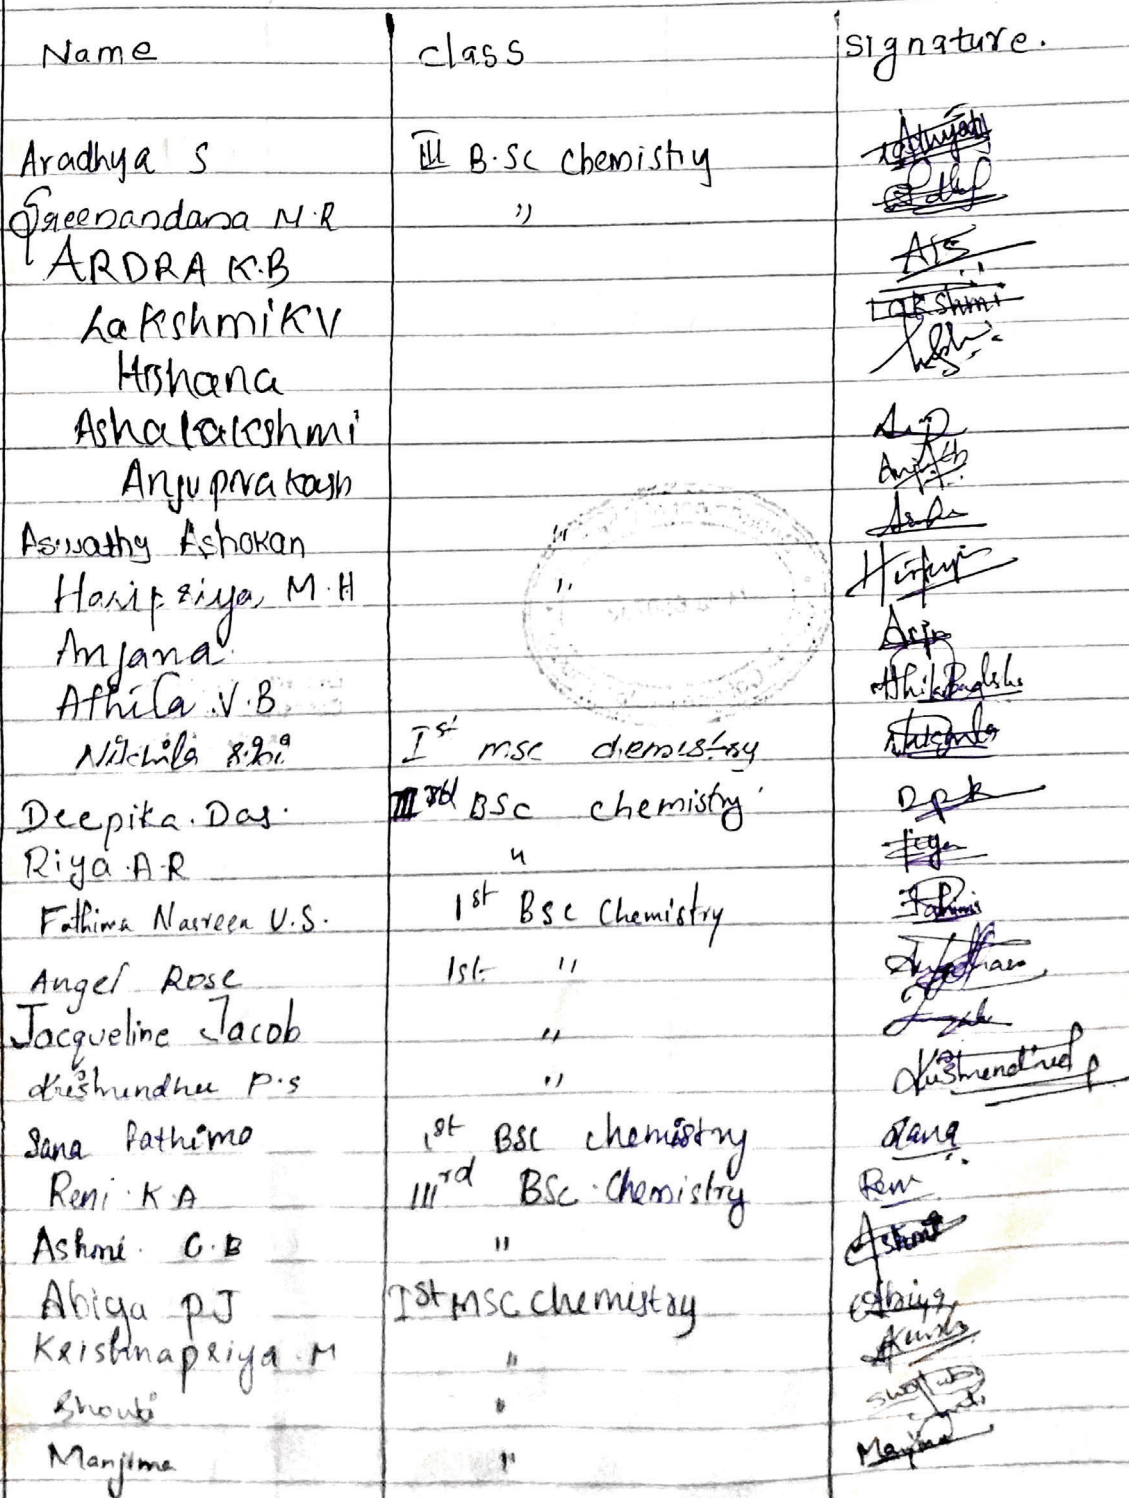 Name class signature.
Aradhya S III B.Sc chemistry
Sreenandana M.R "
ARDRA K.B Ars
Lakshmi KV Lakshmi
Hishana
Ashalakshmi
Anju prakash
Aswathy Ashokan "
Haripriya M.H "
Anjana
Athila .V.B
Nikhila Ist msc chemistry
Deepika. Das. IIIrd BSc chemistry Dpk
Riya .A.R "
Fathima Nasreen U.S. 1st BSc Chemistry
Angel Rose 1st "
Jacqueline Jacob "
Krishnendhu P.S "
Sana Fathima 1st BSC chemistry Sana
Reni . K A IIIrd BSc . Chemistry Reni
Ashmi . C.B " Ashmi
Abiya P J Ist MSC Chemistry Abiya
Krishnapriya . M "
"
Manjima " Manjima